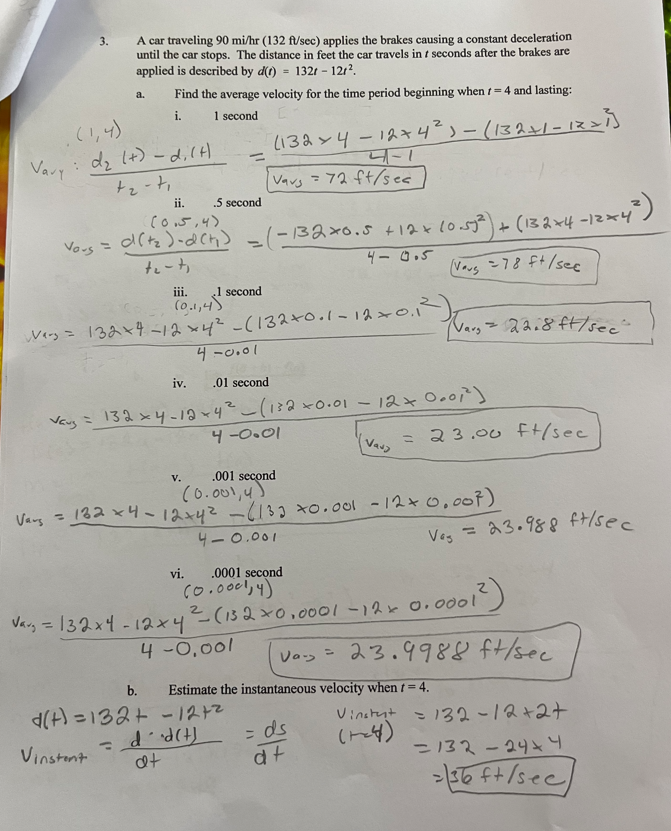 3. A car traveling 90 mi/hr (132 ft/sec) applies the brakes causing a constant deceleration
until the car stops. The distance in feet the car travels in t seconds after the brakes are
applied is described by d(t) = 132t − 12t².
a. Find the average velocity for the time period beginning when t = 4 and lasting:
i. 1 second
(1,4)
Vavg : d₂(t) − d₁(t) / t₂ − t₁ = (132×4 − 12×4²) − (132×1 − 12×1²) / 4−1
Vavg = 72 ft/sec
ii. .5 second
(0.5,4)
Vavg = d(t₂)−d(t₁) / t₂−t₁ = (−132×0.5 + 12×(0.5)²) + (132×4 −12×4²) / 4−0.5
Vavg = 78 ft/sec
iii. .1 second
(0.1,4)
Vavg = 132×4 −12×4² −(132×0.1 − 12×0.1²) / 4−0.01
Vavg = 22.8 ft/sec
iv. .01 second
Vavg = 132×4−12×4² −(132×0.01 − 12×0.01²) / 4−0.01
Vavg = 23.00 ft/sec
v. .001 second
(0.001,4)
Vavg = 132×4 − 12×4² −(132×0.001 −12×0.00²) / 4−0.001
Vavg = 23.988 ft/sec
vi. .0001 second
(0.0001,4)
Vavg = 132×4 −12×4² −(132×0.0001 −12×0.0001²) / 4−0.001
Vavg = 23.9988 ft/sec
b. Estimate the instantaneous velocity when t = 4.
d(t) = 132t − 12t²
Vinstent = d·d(t) / dt = ds / dt
Vinstent (t=4) = 132 −12×2t
= 132 − 24×4
= 36 ft/sec